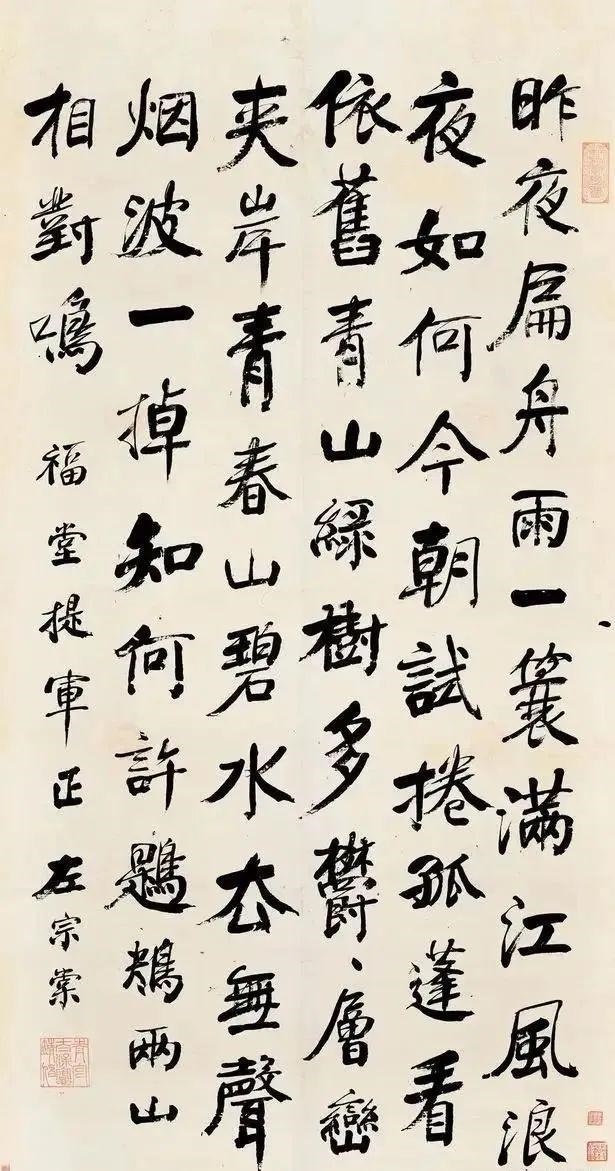 昨夜扁舟雨一簑满江風浪
夜如何今朝試捲孤蓬看
依舊青山綠樹多鬱、層巒
夾岸青春山碧水去無聲
烟波一掉知何許鶗鴂兩山
相對鳴 福堂提軍正 左宗棠